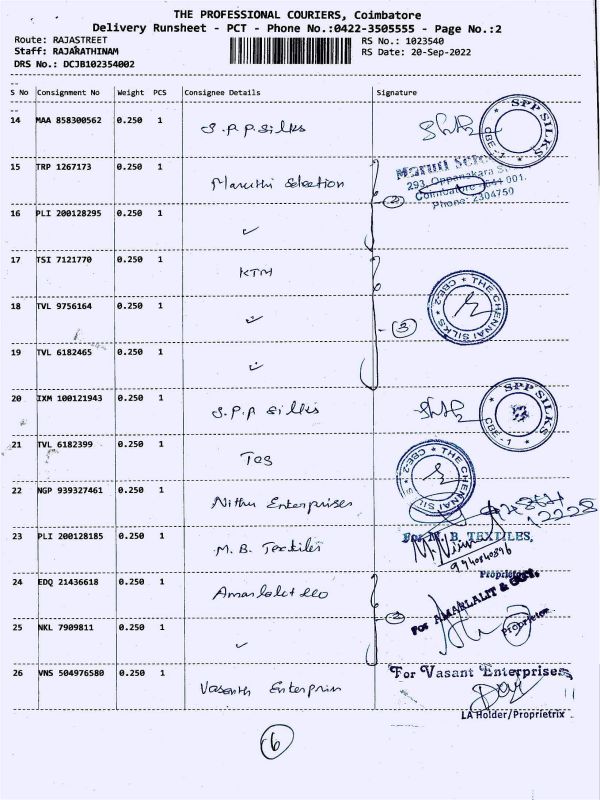 THE PROFESSIONAL COURIERS, Coimbatore
Delivery Runsheet - PCT - Phone No.:0422-3505555 - Page No.:2
Route: RAJASTREET RS No.: 1023540
Staff: RAJARATHINAM RS Date: 20-Sep-2022
DRS No.: DCJB102354002
S No Consignment No Weight PCS Consignee Details Signature
14 MAA 858300562 0.250 1 S.P.P Silks
SPP SILKS CBE - 1
15 TRP 1267173 0.250 1 Maruthi Selection
Maruti
293, Oppanakara
Coimbatore 641 001.
Phone: 2304750
16 PLI 200128295 0.250 1 ✓ 2
17 TSI 7121770 0.250 1 KTM
THE CHENNAI SILKS CBE-2
18 TVL 9756164 0.250 1 ✓ - 3
19 TVL 6182465 0.250 1 ✓
20 IXM 100121943 0.250 1 S.P.P Silks
SPP SILKS CBE - 1
21 TVL 6182399 0.250 1 TCS
THE CHENNAI CBE-2
22 NGP 939327461 0.250 1 Nithu Enterprises
12225
23 PLI 200128185 0.250 1 M. B. Textiles
For M. B. TEXTILES,
Proprietor
24 EDQ 21436618 0.250 1 Amarlalit &Co
For AMARLALIT &
Proprietor
25 NKL 7909811 0.250 1 ✓ 2
26 VNS 504976580 0.250 1 Vasanth Enterprises
For Vasant Enterprises
LA Holder/Proprietrix
6